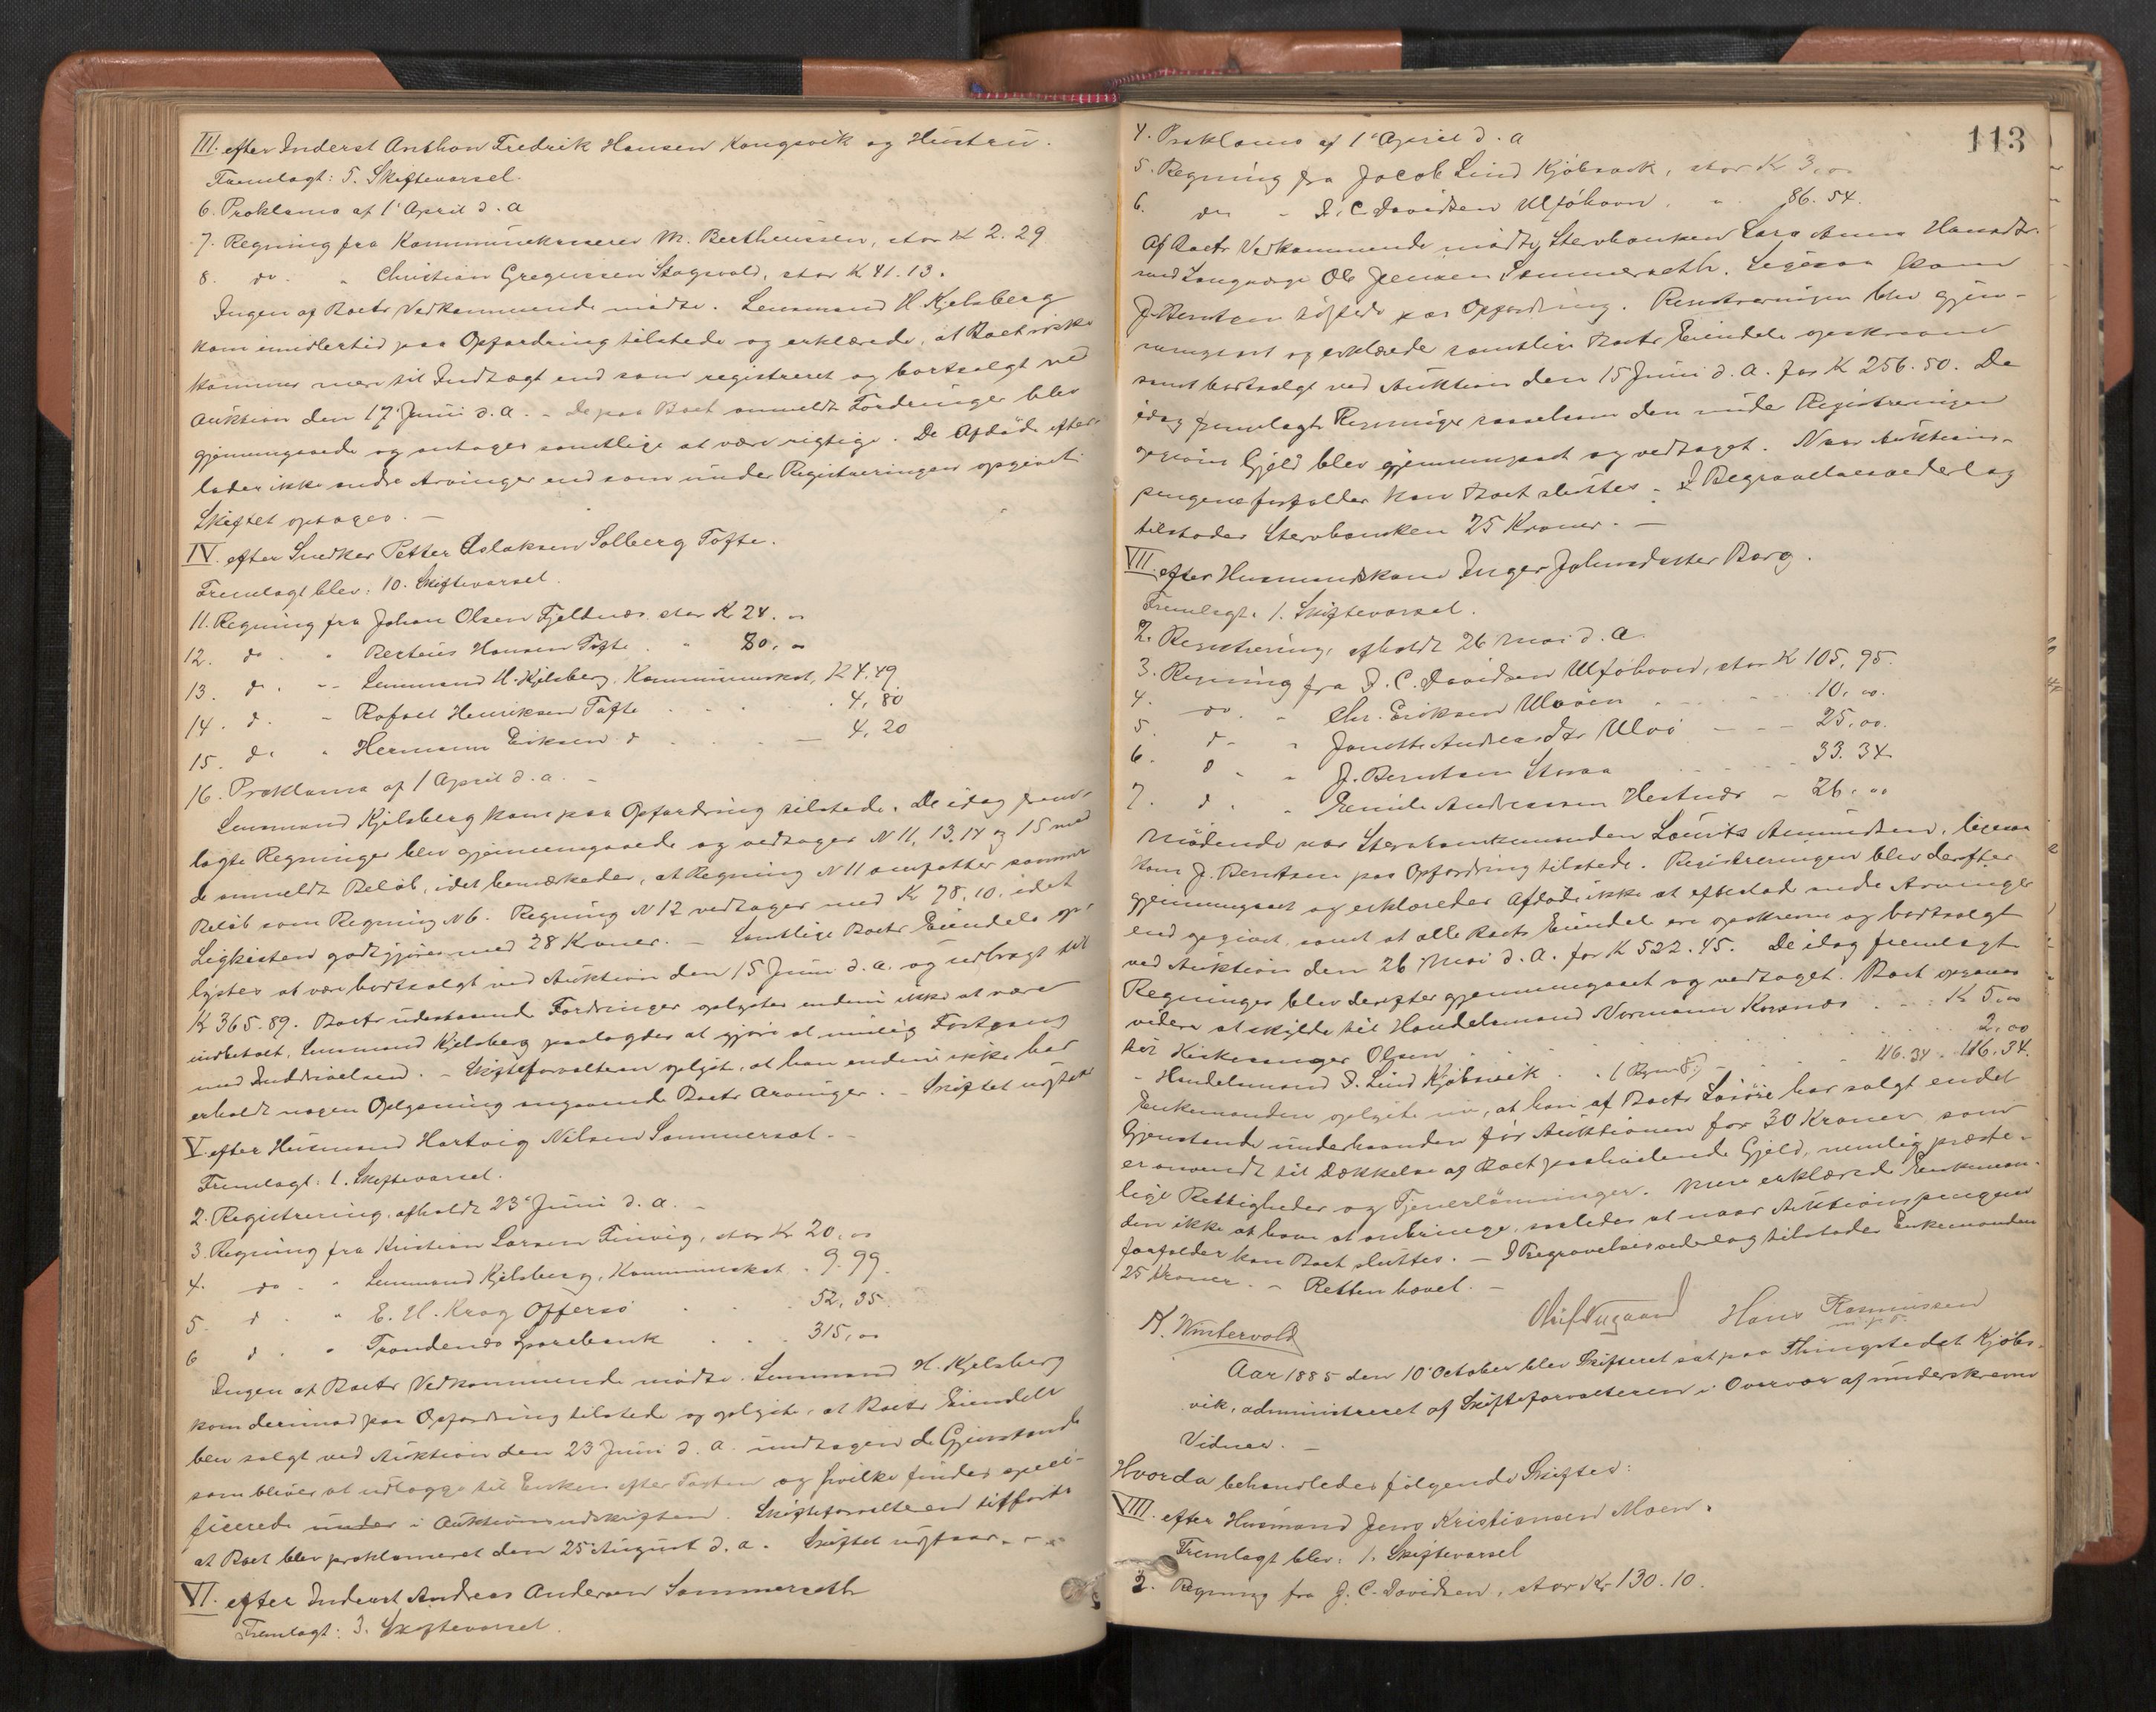 III. efter Inderst Anthon Fredrik Hansen Kongsvik og Hustru.
Fremlagt: 5. Skiftevarsel.
6. Proklama af 1' April d. a
7. Regning fra Kommunekasserer M. Bertheussen, stor K 2. 29
8. do. " Christian Gregusen Skogsvold, stor K 41. 13.
Ingen af Boets Vedkommende mødte. Lensmand H. Kjelsberg
kom imidlertid paa Opfordring tilstede og erklærede, at Boet ikke
kommer mere til Indtægt end som registreret og bortsolgt ved
Auktion den 17' Juni d. a. - De paa Boet anmeldte Fordringer blev
gjennemgaaede og antages samtlige at være rigtige. De Afdøde efter-
lader ikke andre Arvinger end som under Registreringen opgivet.
Skiftet optages. -
IV. efter Snedker Petter Aslaksen Solberg Tofte.
Fremlagt blev: 10. Skiftevarsel.
11. Regning fra Johan Olsen Fjeldnæs, stor K 24. "
12. do. " Berteus Hansen Tofte. " 80. "
13. d. -- Lensmand H. Kjelsberg, Kommuneskat, K 4. 49.
14. d. " Rafael Henriksen Tofte . . . 4, 80
15. do " Hermann Eriksen d . . . - 4, 20
16. Proklama af 1 April d. a. -
Lensmand Kjelsberg kom paa Opfordring tilstede. De idag frem-
lagte Regninger blev gjennemgaaede og vedtages N 11, 13, 14 og 15 med
de anmeldte Beløb, idet bemærkedes, at Regning N 11 omfatter samme
Beløb som Regning N 6. Regning N 12 vedtages med K 78. 10. idet
Ligkisten godtgjøres med 28 Kroner. - Samtlige Boets Eiendele op-
lystes at være bortsolgt ved Auktion den 15 Juni d. a. og udbragt til
K 365. 89. Boets udestaaende Fordringer oplystes endnu ikke at være
indbetalt, Lensmand Kjelsberg paalagdes at gjøre al mulig Fortgang
med Inddrivelsen. - Skifteforvalteren oplyste, at han endnu ikke har
erholdt nogen Oplysning angaaende Boets Arvinger. - Skiftet udstaar
V. efter Husmand Hartvig Nilsen Sommersæt. -
Fremlagt: 1. Skiftevarsel.
2. Registrering, afholdt 23' Juni d. a. -
3. Regning fra Kristian Larsen Finvig, stor Kr 20. "
4. do " Lensmand Kjelsberg, Kommuneskat . 9. 99.
5. d " E. H. Krag Offersø . . . 52, 35.
6 d. " Trondenæs Sparebank . . . 315, oo
Ingen af Boets Vedkommende mødte. Lensmand H. Kjelsberg
kom derimod paa Opfordring tilstede og oplyste, at Boets Eiendele
blev solgt ved Auktion den 23 Juni d. a. undtagen de Gjenstande
som bliver at udlægge til Enken efter Taxten og hvilke findes speci-
ficerede under i Auktionsudskriften. Skifteforvalteren tilførte
at Boet blev proklameret den 25' August d. a. Skiftet udstaar. - -
VI. efter Inderst Andreas Andersen Sommersæth
Fremlagt: 3. Skiftevarsel.
113
4. Proklama af 1' April d. a
5. Regning fra Jacob Lind Kjøbsvik, stor K 3. oo
6. do - D. C. Davidsen Ulføhavn. " 86. 54.
Af Boets Vedkommende mødte Stervbenken Lara Anna Hansdtr.
med Laugværge Ole Jensen Sommersæth. Ligesaa kom
J. Berntsen tilstede paa Opfordring. Registreringen blev gjen-
nemgaaet og erklærede samtlige Boets Eiendele opskrevne
samt bortsolgt ved Auktion den 15 Juni d. a. for K 256. 50. De
idag fremlagte Regninger saavelsom den under Registreringen
opgivne Gjæld blev gjennemgaaet og vedtaget. Naar Auktions-
pengene forfalder kan Boet sluttes. - I Begravelsesvederlag
tilstodes Stervbenken 25 Kroner. -
VII. efter Husmandskone Inger Johnsdatter Borg.
Fremlagt. 1. Skiftevarsel.
2. Registrering, afholdt 26 Mai d. a.
3. Regning fra D. C. Davidsen Ulføhavn, stor K 105, 95.
4. do. " Chr. Eriksen Ulvøen . . . 10. oo.
5. d - " Jonette Andreasdtr Ulvø - - 25. oo.
6. d. " J. Berntsen Storaa . . . 33. 34
7. d. " Emile Andreassen Hestnæs - 26. oo
Mødende var Stervbenkemanden Lourits Amundsen, ligesaa
kom J. Berntsen paa Opfordring tilstede. Registreringen blev derefter
gjennemgaaet og erklæredes Afdøde ikke at efterlade andre Arvinger
end opgivet, samt at alle Boets Eiendele ere opskrevne og bortsolgt
ved Auktion den 26 Mai d. a. for K 522. 45. De idag fremlagte
Regninger blev derefter gjennemgaaet og vedtaget. Boet opgaves
videre at skylde til Handelsmand Normann Korsnæs . - K 5. oo
til Kirkesanger Olsen . . . 2. oo
- Handelsmand D. Lind Kjøbsvik . . (Regn 8.) - . 116. 34. 116. 34.
Enkemanden oplyste nu, at han af Boets Løsøre har solgt endel
Gjenstande underhaanden før Auktionen for 30 Kroner, som
er anvendt til Dækkelse af Boet paahvilende Gjæld, nemlig præste-
lige Rettigheder og Tjenerlønninger. Mere erklærede Enkeman-
den ikke at have at anbringe, saaledes at naar Auktionspengene
forfalder kan Boet sluttes. - I Begravelsesvederlag tilstodes Enkemanden
25 Kroner. - Retten hævet. -
A. Wintervold Hans Rasmussen
m. p. P.
Aar 1885 den 10' October blev Skifteret sat paa Thingstedet Kjøbs-
vik, administreret af Skifteforvalteren i Overvær af underskrevne
Vidner. -
Hvorda behandledes følgende Skifter:
VIII. efter Husmand Jens Kristiansen Moen.
Fremlagt blev: 1. Skiftevarsel
2. Regning fra J. C. Davidsen, stor Kr 130. 10.